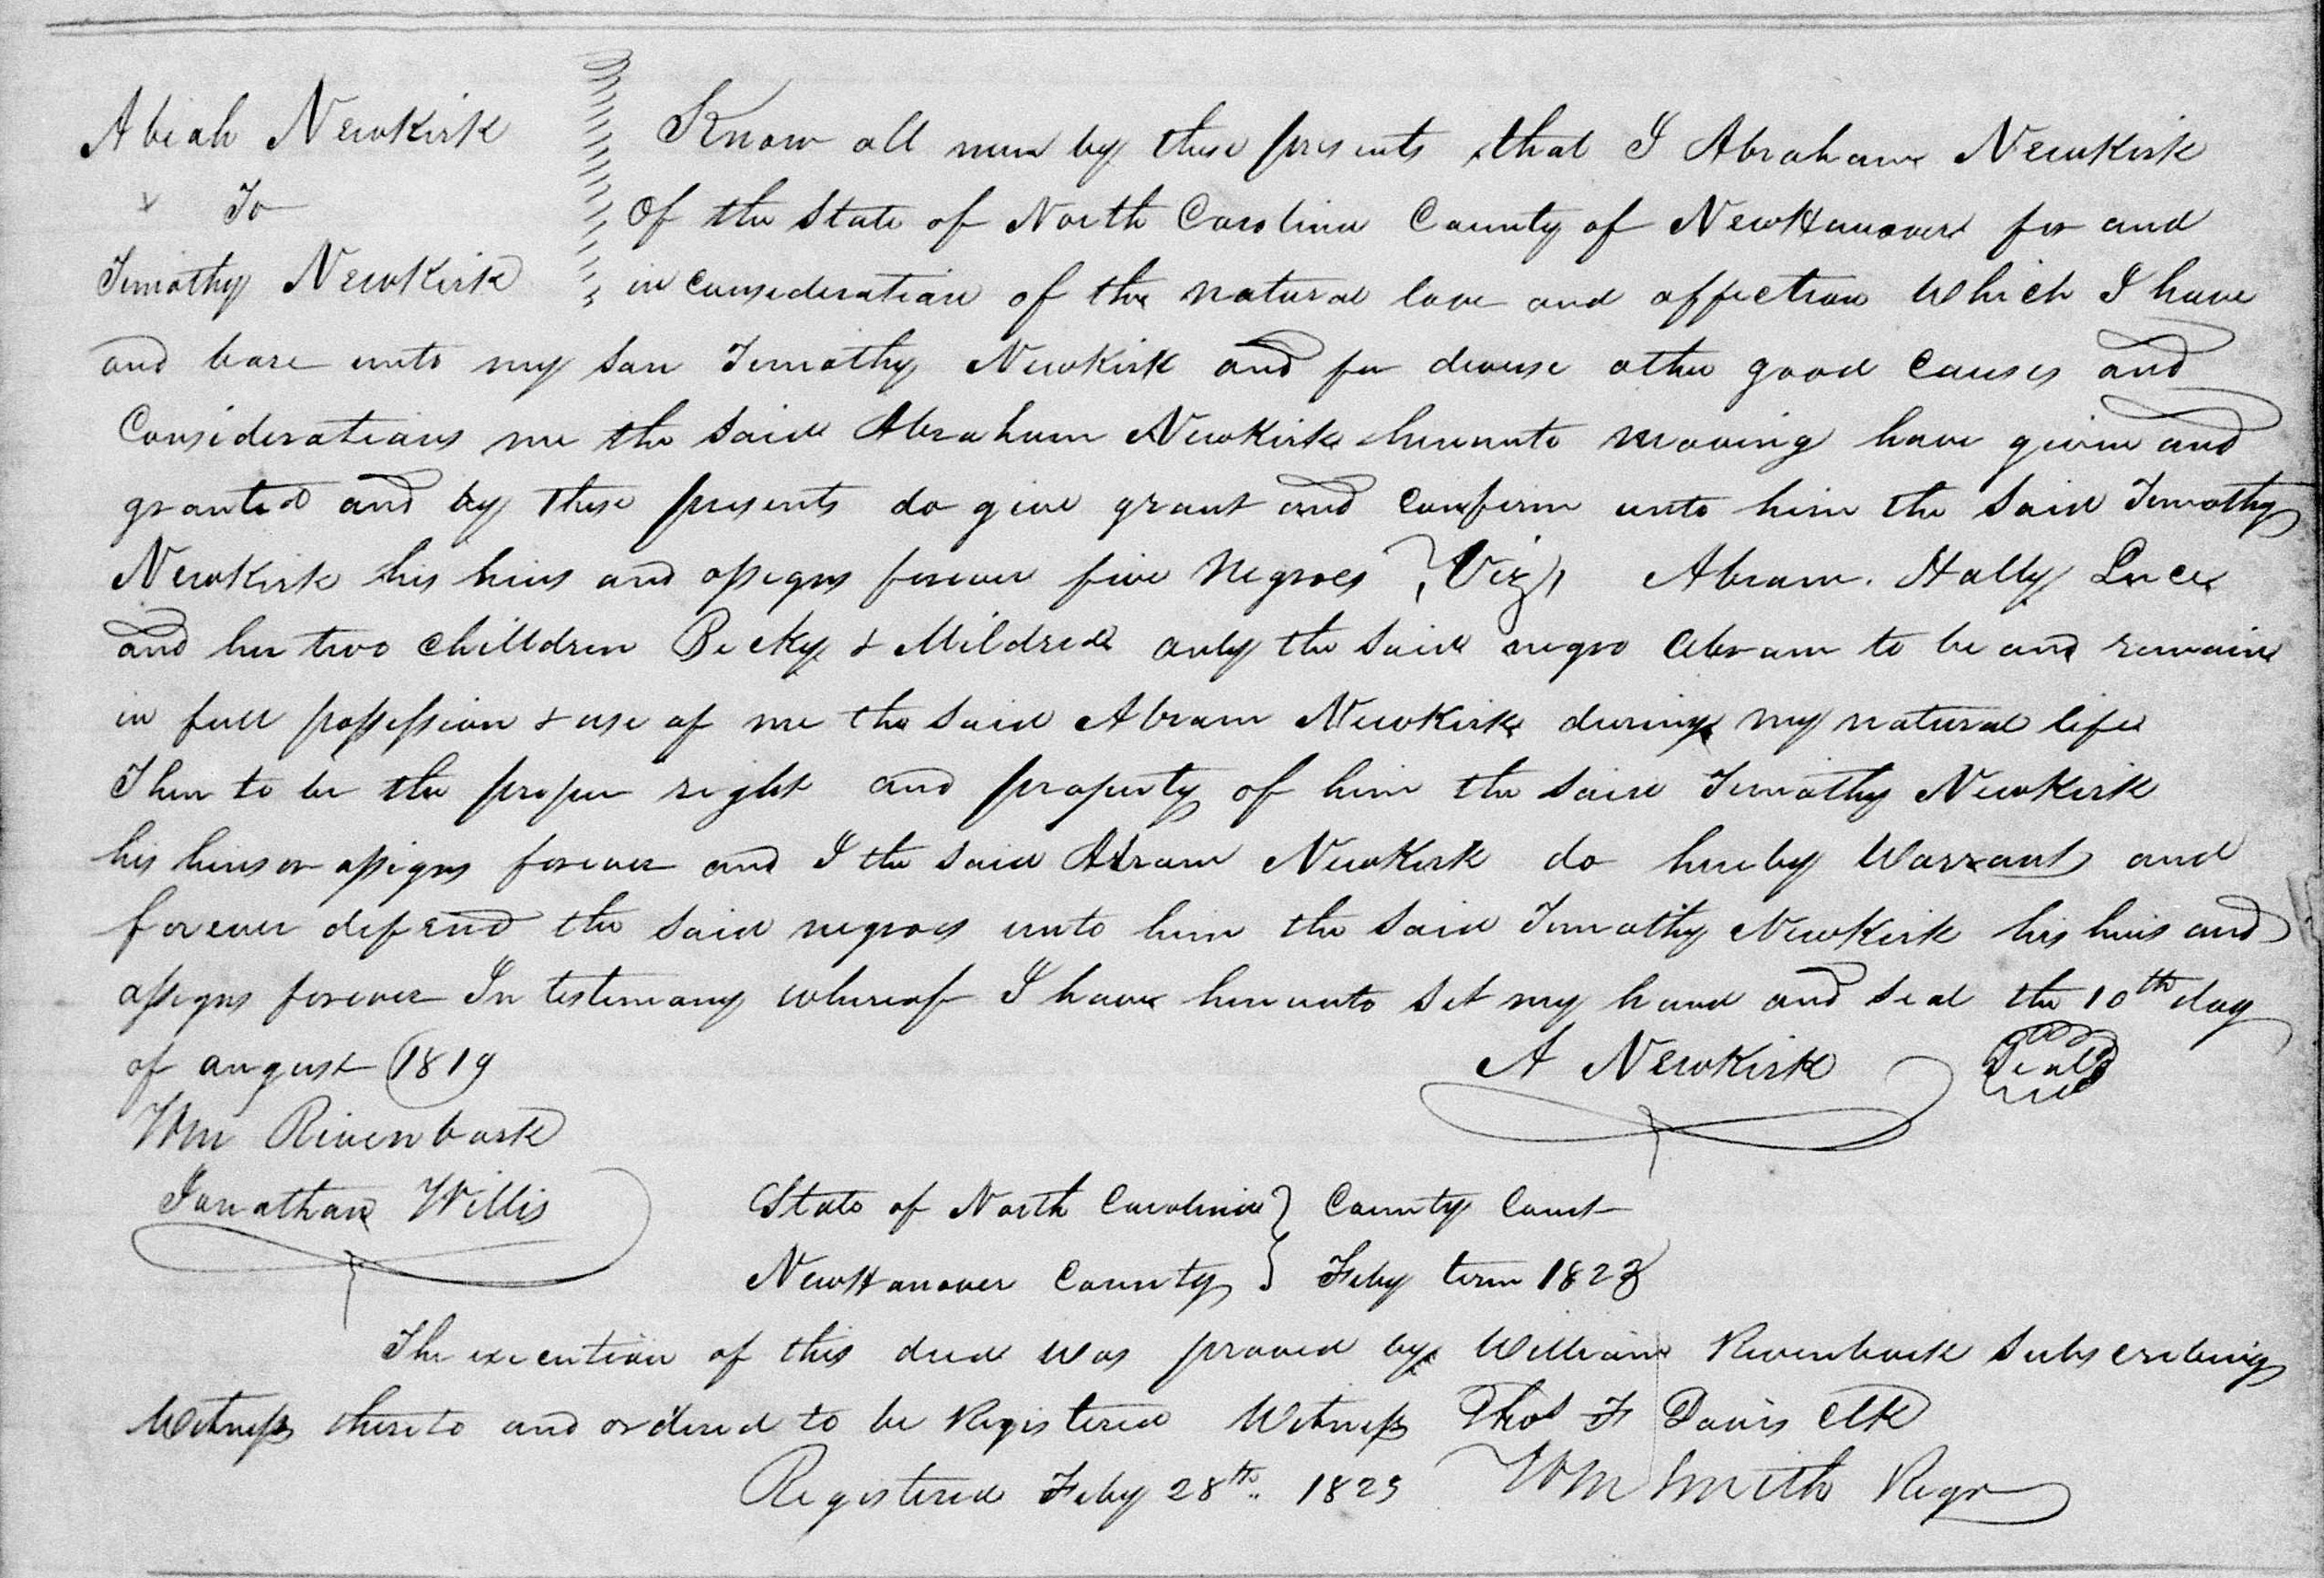 Abiah Newkirk
To
Timothy Newkirk
Know all men by these presents that I Abraham Newkirk
Of the State of North Carolina County of NewHanover for and
in consideration of the natural love and affection Which I have
and bare unto my son Timothy Newkirk and for diverse other good Causes and
Considerations me the said Abraham Newkirk hereunto moving have given and
granted and by these presents do give grant and confirm unto him the said Timothy
Newkirk his heirs and assigns forever five Negroes (Viz) Abram. Hally Luce
and her two childdren Becky & Mildred only the said negro Abram to be and remain
in full possession & use of me the said Abram Newkirk during my natural life
Then to be the proper right and property of him the said Timothy Newkirk
his heirs or assigns forever and I the said Abram Newkirk do hereby Warrant and
forever defend the said negroes unto him the said Timothy Newkirk his heirs and
assigns forever In testimony whereof I have hereunto set my hand and seal the 10th day
of august (1819
A Newkirk Seal
Wm Rivenbark
Jonathan Willis
State of North Carolina } County Court
NewHanover County } Feby term 1823
The execution of this deed was proved by William Rivenbark Subscribing
Witness thereto and ordered to be Registered Witness Thos F Davis Clk
Registered Feby 28th 1823 Wm Smith Regr